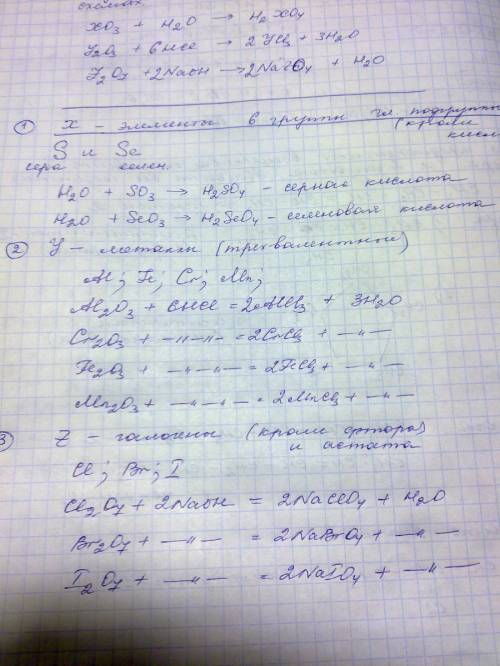 схемах.
XO₃ + H₂O → H₂XO₄
Y₂O₃ + 6HCl → 2YCl₃ + 3H₂O
Z₂O₇ + 2NaOH → 2NaZO₄ + H₂O
① X – элементы 6 группы гл. подгруппы
(кроме кисл
S и Se
сера селен.
H₂O + SO₃ → H₂SO₄ – серная кислота
H₂O + SeO₃ → H₂SeO₄ – селеновая кислота
② Y – металлы (трехвалентные)
Al; Fe; Cr; Mn;
Al₂O₃ + 6HCl = 2AlCl₃ + 3H₂O
Cr₂O₃ + —„—„— = 2CrCl₃ + —„—
Fe₂O₃ + —„—„— = 2FeCl₃ + —„—
Mn₂O₃ + —„—„— = 2MnCl₃ + —„—
3 Z – галогены (кроме фтора)
и астата
Cl; Br; I
Cl₂O₇ + 2NaOH = 2NaClO₄ + H₂O
Br₂O₇ + —„— = 2NaBrO₄ + —„—
I₂O₇ + —„— = 2NaIO₄ + —„—